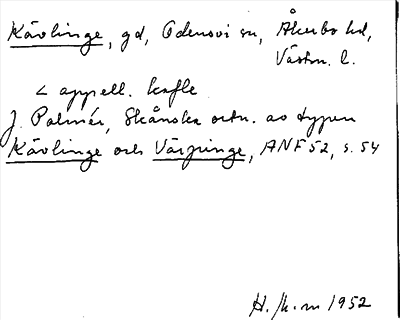 Kävlinge, gd, Odensvi sn, Åkerbo hd,
Västm. l.
< appell. kafle
J. Palmér, Skånska ortn. av typen
Kävlinge och Värpinge, ANF 52, s. 54
1952